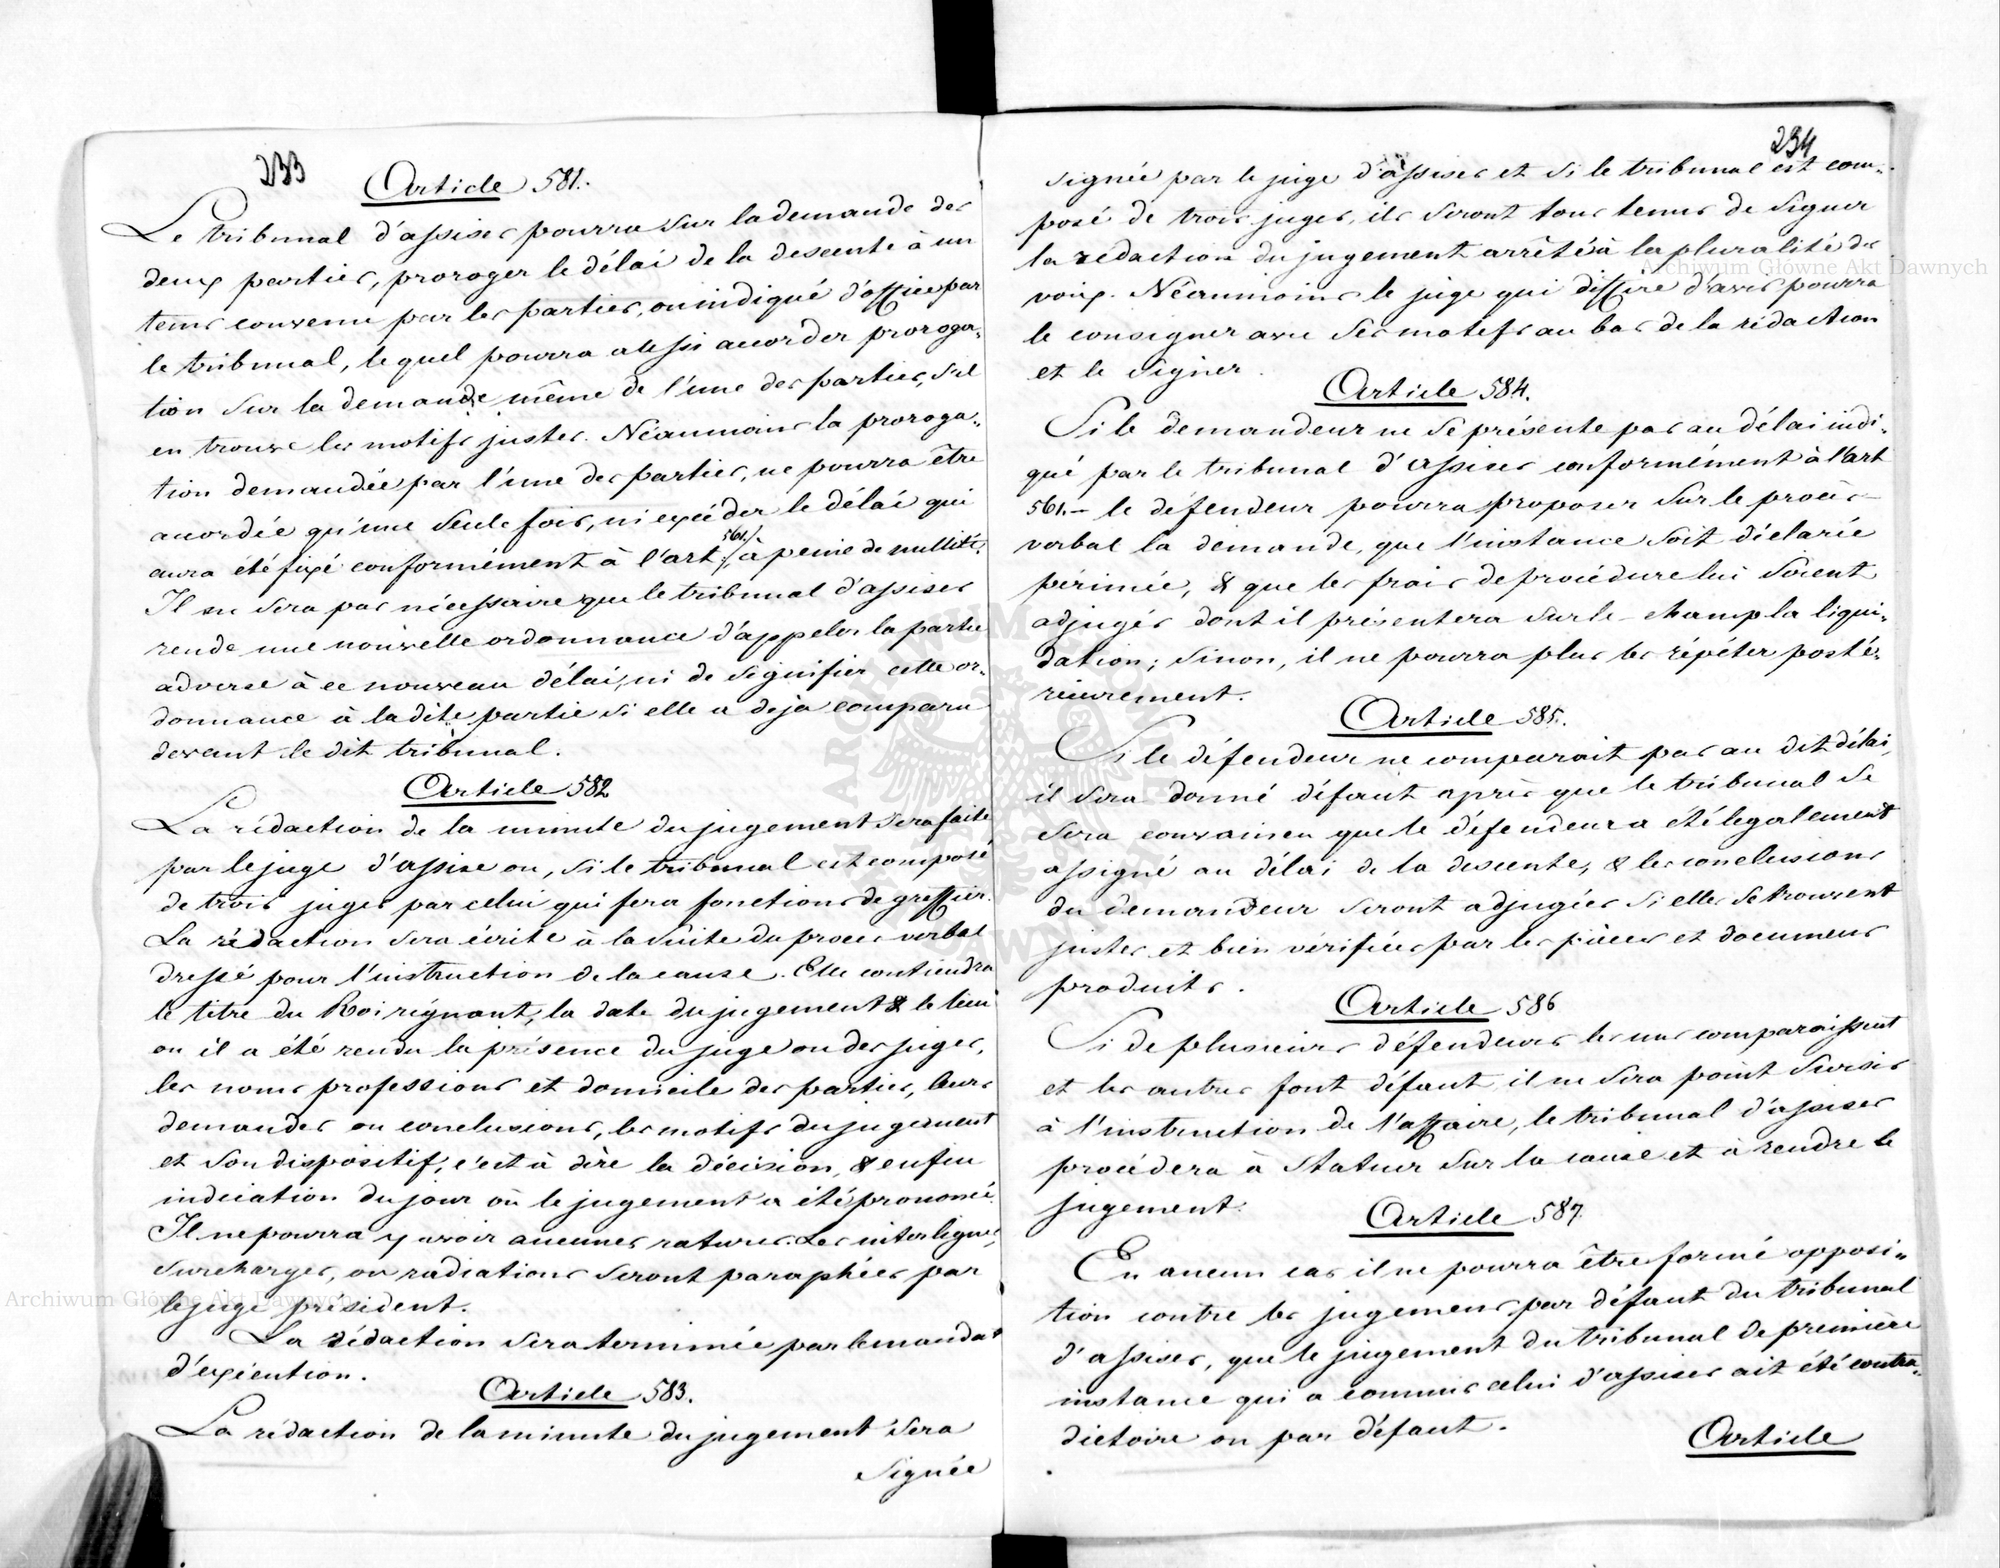 233
Article 581.
Le tribunal d'assises pourra sur la demande des
deux parties, proroger le délai de la descente à un
tems convenu par les parties, ou indiqué d'office par
le tribunal, le quel pourra aussi accorder proroga-
tion sur la demande même de l'une des parties, s'il
en trouve les motifs justes. Néanmoins la proroga-
tion demandée par l'une des parties, ne pourra être
accordée qu'une seule fois, ni excéder le délai qui
aura été fixé conformément à l'art. 561. à peine de nullité.
Il ne sera pas nécessaire que le tribunal d'assises
rende une nouvelle ordonnance d'appeler la partie
adverse à ce nouveau délai, ni de signifier cette or-
donnance à la dite partie si elle a deja comparu
devant le dit tribunal.
Article 582
La rédaction de la minute du jugement sera faite
par le juge d'assise ou, si le tribunal est composé
de trois juges par celui qui fera fonctions de greffier.
La rédaction sera écrite à la suite du procès verbal
dressé pour l'instruction de la cause. Elle contiendra
le titre du Roi régnant, la date du jugement & le lieu
ou il a été rendu la présence du juge ou des juges,
les noms professions et domicile des parties, leurs
demandes ou conclusions, les motifs du jugement
et son dispositif, c'est à dire la décision, & enfin
indication du jour où le jugement a été prononcé.
Il ne pourra y avoir aucunes ratures. Les interlignes,
surcharges, ou radiations seront paraphées par
le juge président.
La rédaction sera terminée par le mandat
d'exécution.
Article 583.
La rédaction de la minute du jugement sera
signée
234
signée par le juge d'assises et si le tribunal est com-
posé de trois juges, ils seront tous tenus de signer
la rédaction du jugement arrêté à la pluralité de
voix. Néanmoins le juge qui diffère d'avis pourra
le consigner avec ses motifs au bas de la rédaction
et le signer.
Article 584.
Si le demandeur ne se présente pas au délai indi-
qué par le tribunal d'assises conformément à l'art
561 - le défendeur pourra proposer sur le procès-
verbal la demande, que l'instance soit déclarée
périmée, & que les frais de procédure lui soient
adjugés dont il présentera sur le-champ la liqui-
dation; sinon, il ne pourra plus les répéter posté-
rieurement.
Article 585.
Si le défendeur ne comparait pas au dit délai,
il sera donné défaut après que le tribunal se
sera convaincu que le défendeur a été legalement
assigné au délai de la descente, & les conclusions
du demandeur seront adjugées si elles se trouvent
justes et bien vérifiées par les pièces et documens
produits.
Article 586
Si de plusieurs défendeurs les uns comparaissent
et les autres font défaut il ne sera point sursis
à l'instruction de l'affaire, le tribunal d'assises
procédera à statuer sur la cause et à rendre le
jugement.
Article 587
En aucun cas il ne pourra être formé opposi-
tion contre les jugemens par défaut du tribunal
d'assises, que le jugement du tribunal de première
instance qui a commis celui d'assises ait été contra-
dictoire ou par défaut.
Article
Archiwum Główne Akt Dawnych
Archiwum Główne Akt Dawnych